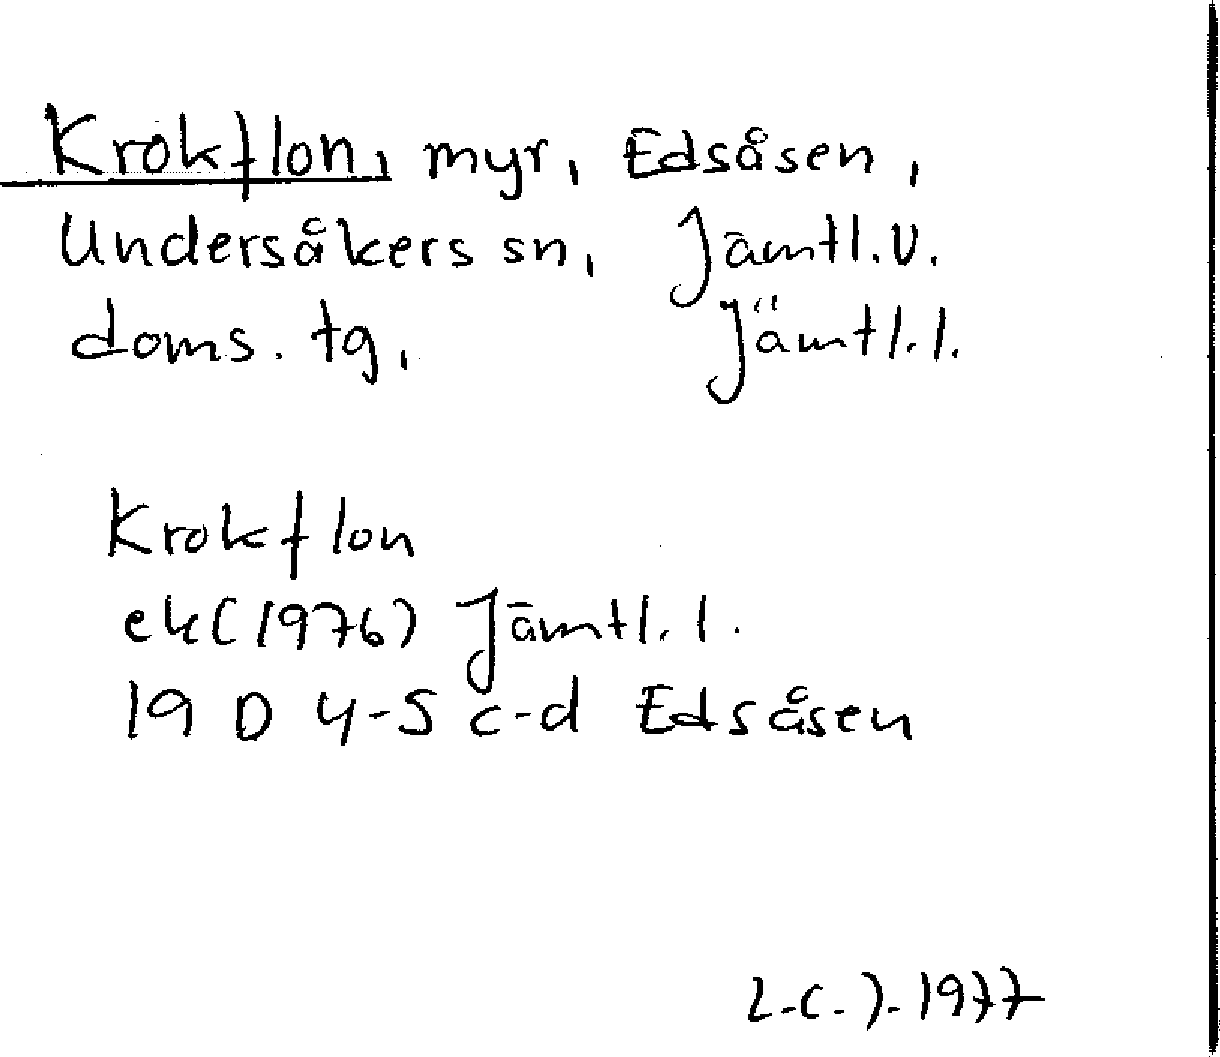 Krokflon, myr, Edsåsen,
Undersåkers sn, Jämtl.v.
doms. tg, Jämtl.l.
Krokflon
ek(1976) Jämtl.l.
19 D 4-5 c-d Edsåsen
L-C. J. 1977